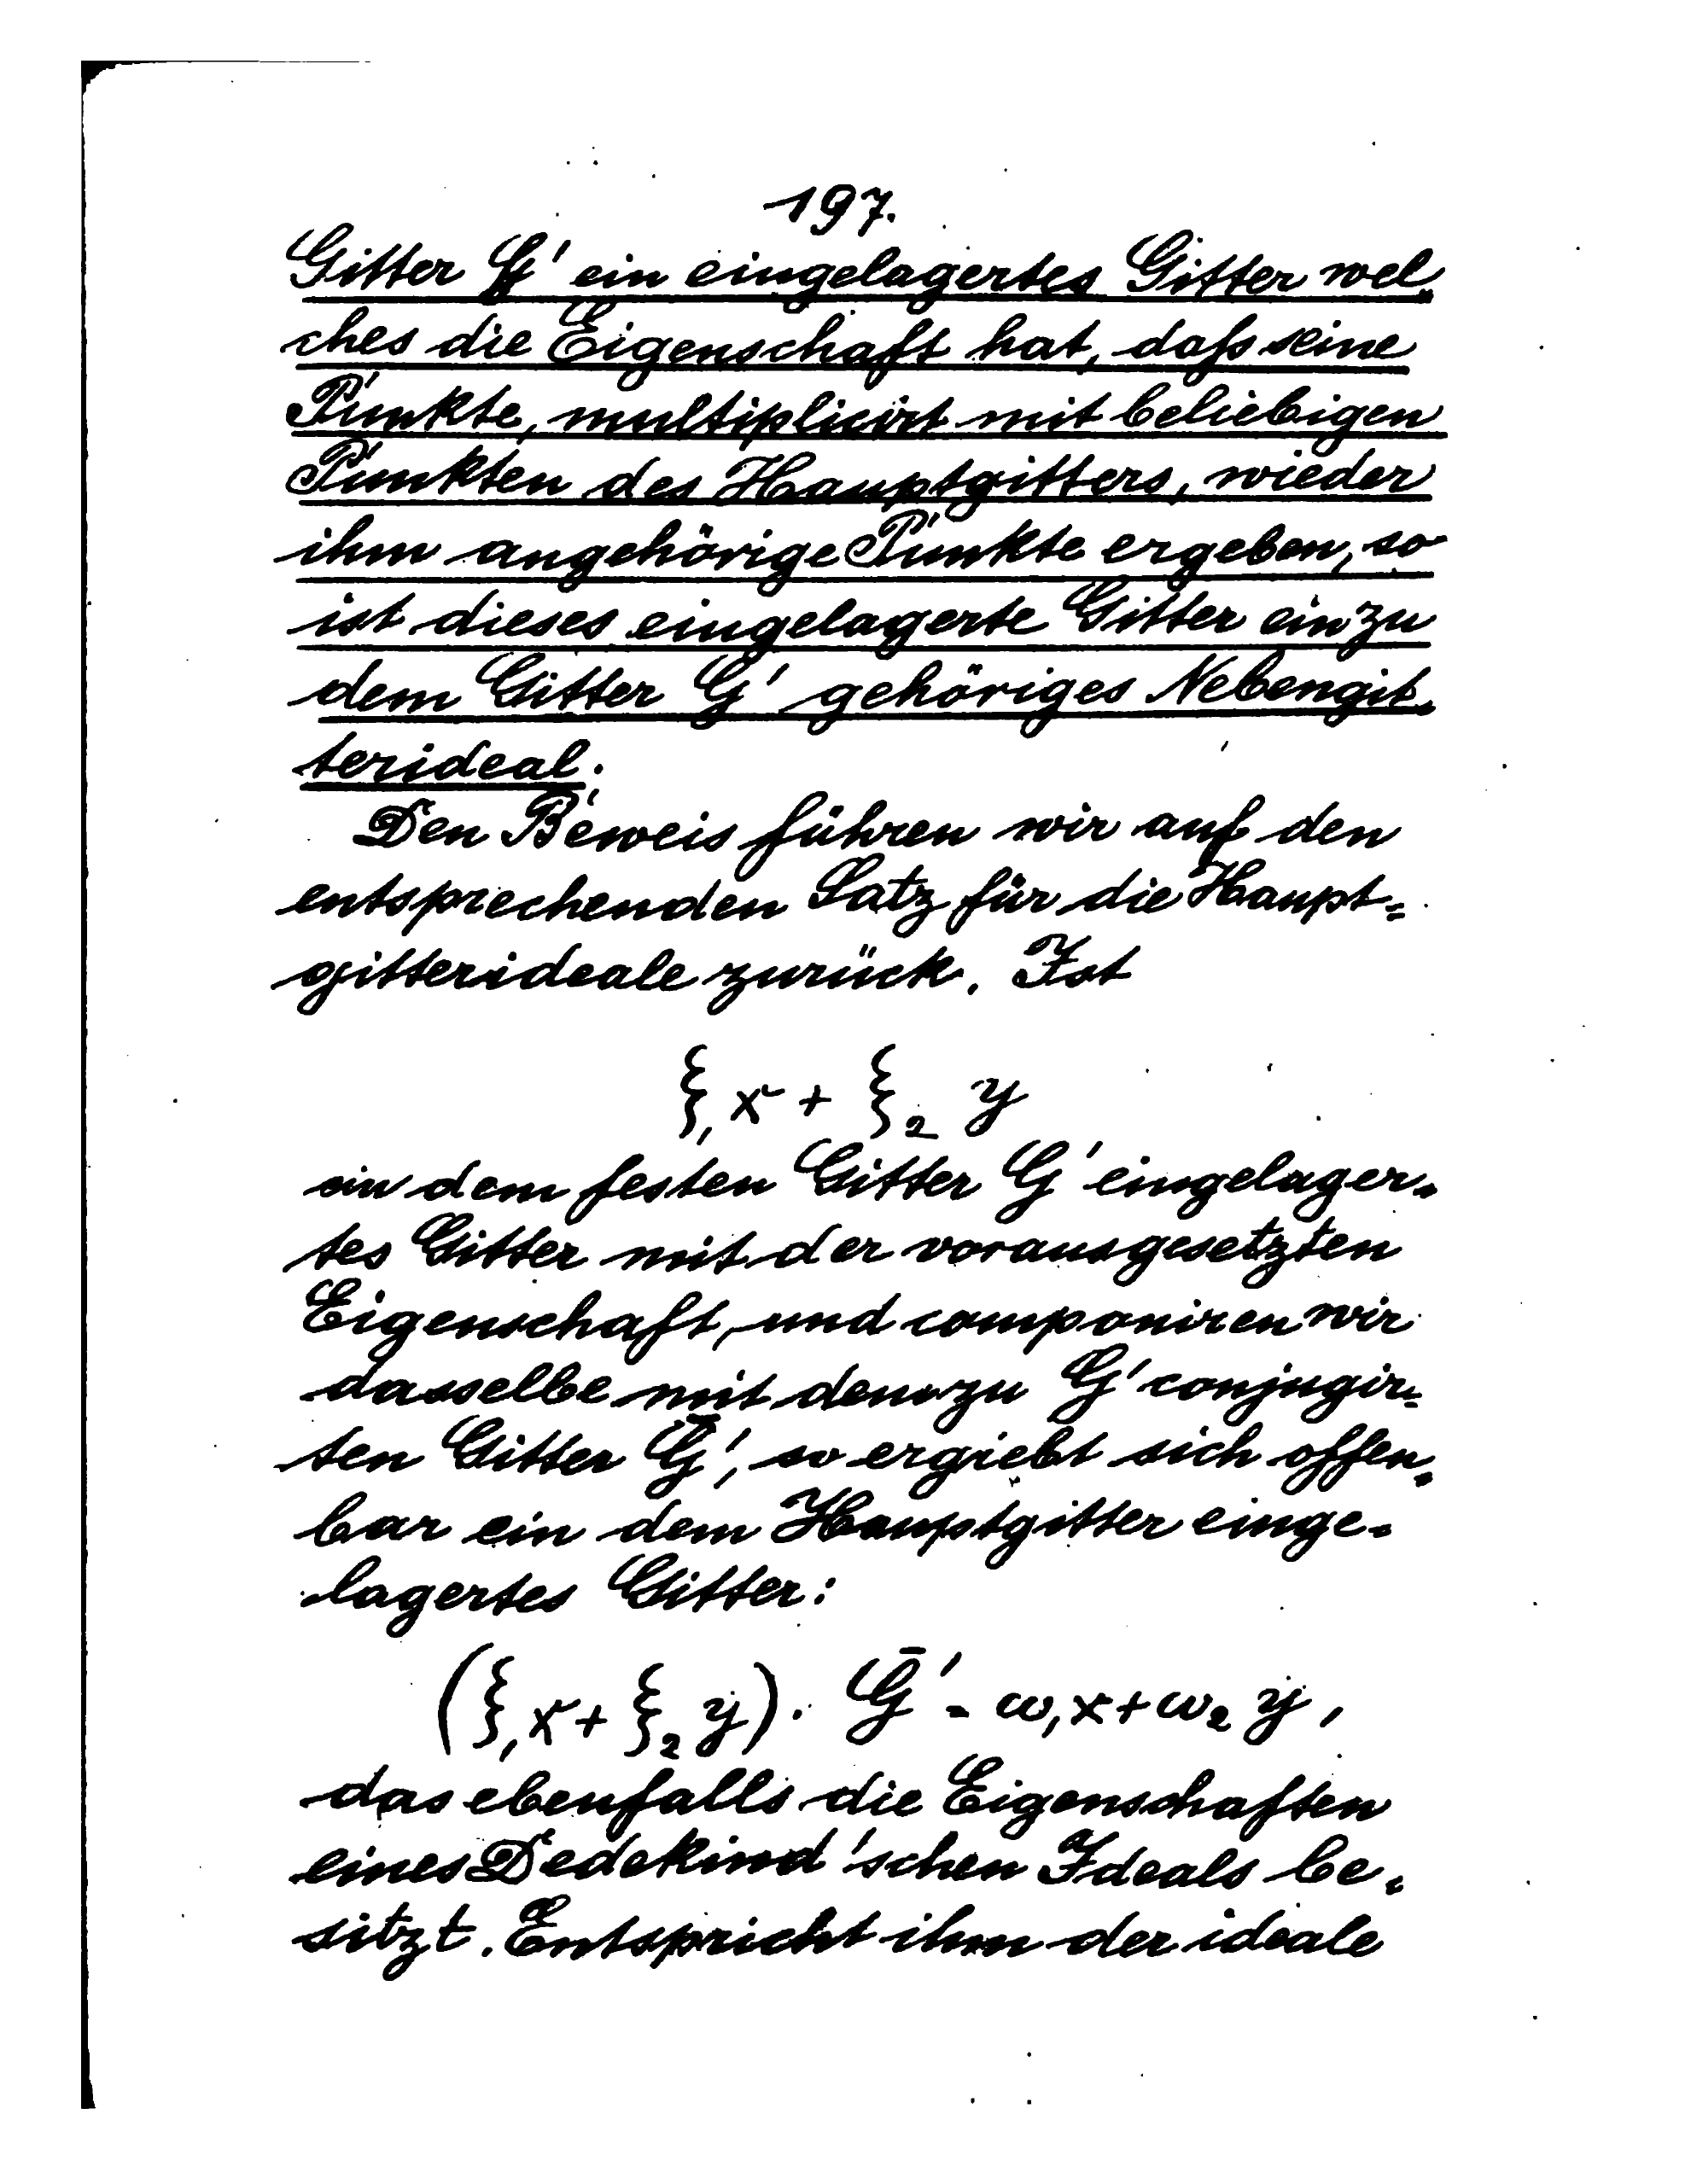 197.
Gitter G' ein eingelagertes Gitter wel-
ches die Eigenschaft hat, daſs seine
Punkte, multiplicirt mit beliebigen
Punkten des Hauptgitters, wieder
ihm angehörige Punkte ergeben, so
ist dieses eingelagerte Gitter ein zu
dem Gitter G' gehöriges Nebengit-
terideal.
Den Beweis führen wir auf den
entsprechenden Satz für die Haupt=
gitterideale zurück. Ist
ξ₁x + ξ₂ y
ein dem festen Gitter G' eingelager-
tes Gitter mit der vorausgesetzten
Eigenschaft, und componiren wir
dasselbe mit dem zu G' conjugir-
ten Gitter Ḡ', so ergiebt sich offen-
bar ein dem Hauptgitter einge-
lagertes Gitter:
(ξ₁x + ξ₂y). Ḡ' = ω₁x + ω₂y,
das ebenfalls die Eigenschaften
eines Dedekind'schen Ideals be-
sitzt. Entspricht ihm der ideale